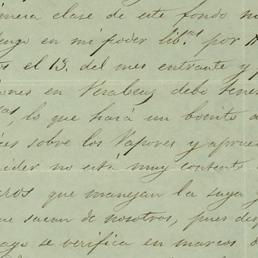 imera clase de este fondo no
tengo en mi poder lib.as por
s el 13. del mes entrante y
iones en Veracruz debo tener
lo que hará un bonito
ces sobre los Vapores y aprue
ider no está muy contento
eros que manejan la suya y
ue sacan de nosotros, pues des
ago se verifica en marcos